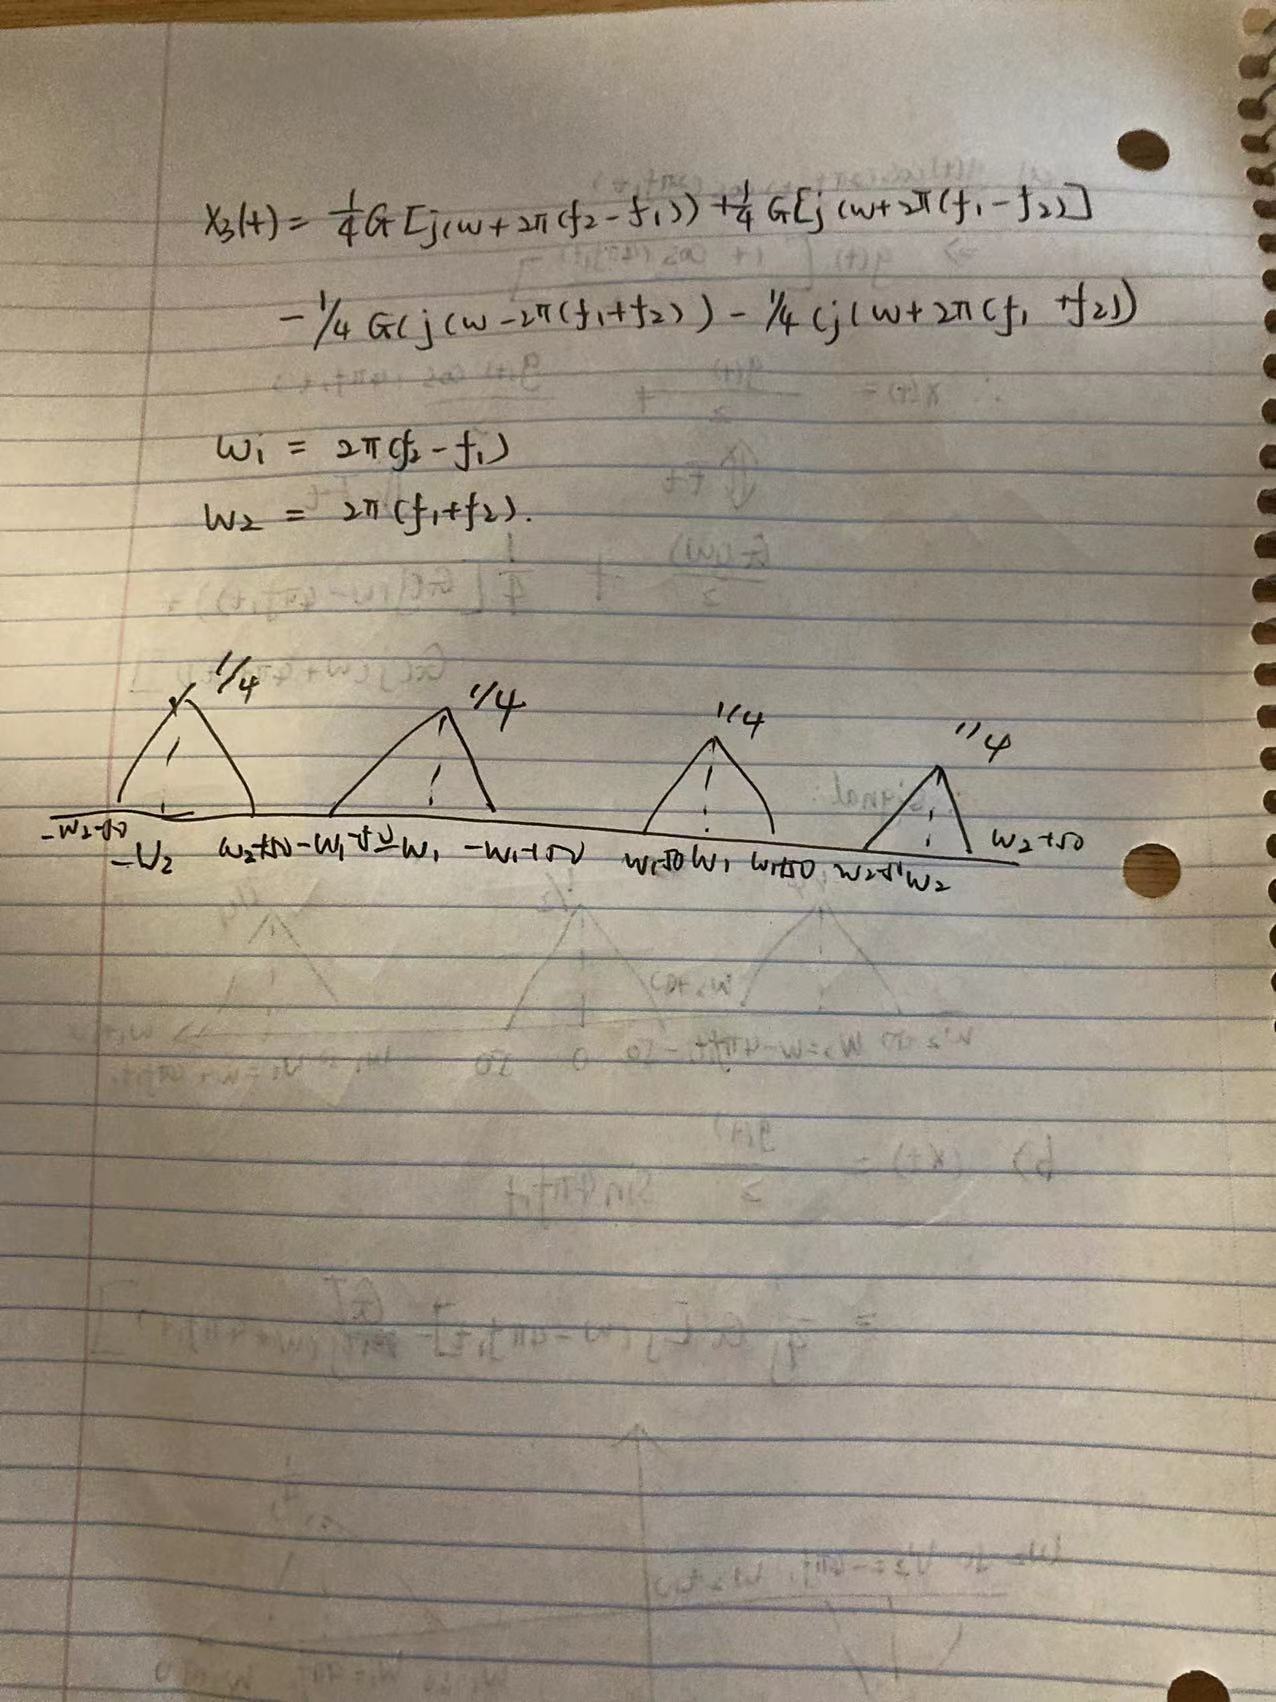 X₃(t) = 1/4 G[j(w+2π(f₂-f₁)) + 1/4 G[j(w+2π(f₁-f₂)]
- 1/4 G(j(w-2π(f₁+f₂)) - 1/4 (j(w+2π(f₁+f₂))
w₁ = 2π(f₂-f₁)
w₂ = 2π(f₁+f₂).
1/4 1/4 1/4 1/4
-w₂-50 -w₂ w₂+50 -w₁-50 -w₁ -w₁+50 w₁-50 w₁ w₁+50 w₂ w₂+50